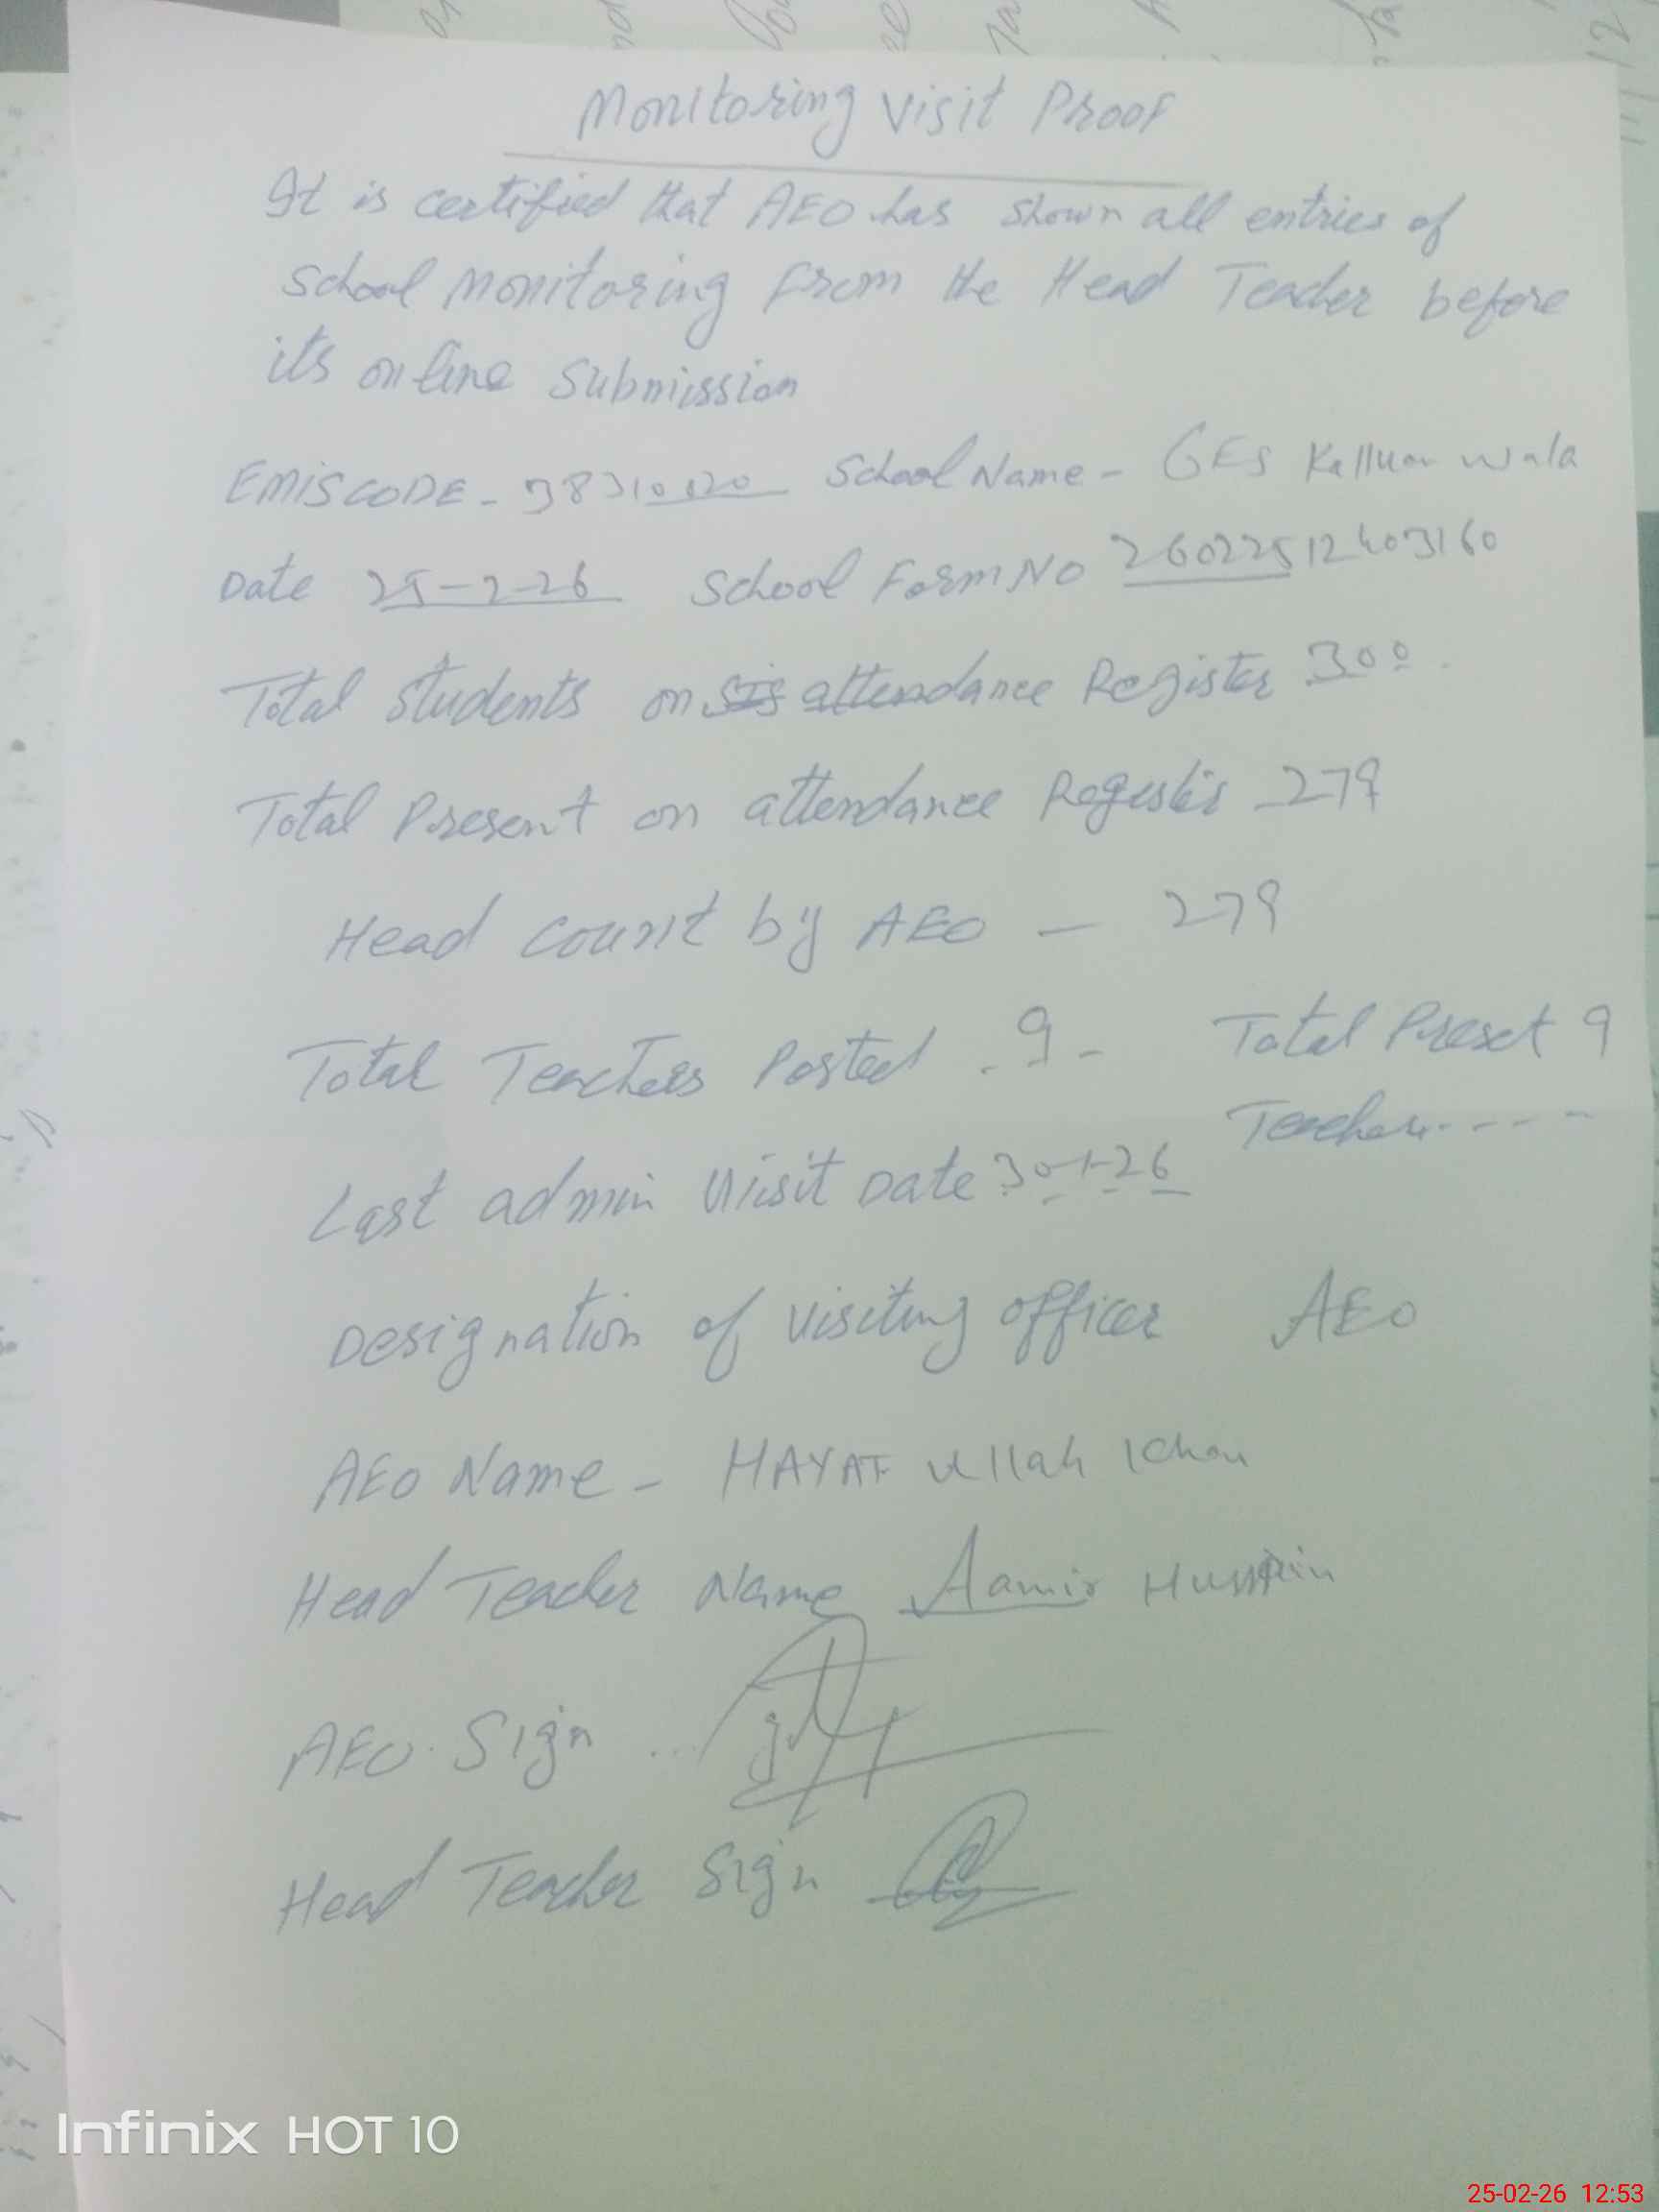 Monitoring Visit Proof
It is certified that AEO has shown all entries of
School Monitoring from the Head Teacher before
its online submission
EMISCODE - 38310120 School Name - GES Kalluan wala
Date 25-2-26 School Form No 26022512403160
Total Students on attendance Register 300
Total Present on attendance Register 279
Head count by AEO - 279
Total Teachers Posted . 9 - Total Preset 9
Teacher....
Last admin Visit Date 30-1-26
Designation of visiting officer AEO
AEO Name - HAYAT Ullah Khan
Head Teacher Name Aamir Hussain
AEO. Sign ...
Head Teacher Sign
Infinix HOT 10
25-02-26 12:53